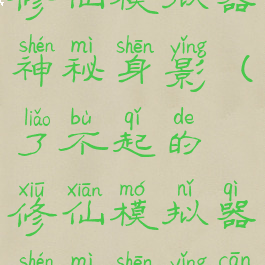 修仙模拟器
shén mì shēn yǐng
神秘身影（
liǎo bù qǐ de
了不起的
xiū xiān mó nǐ qì
修仙模拟器
shén mì shēn yǐng cān